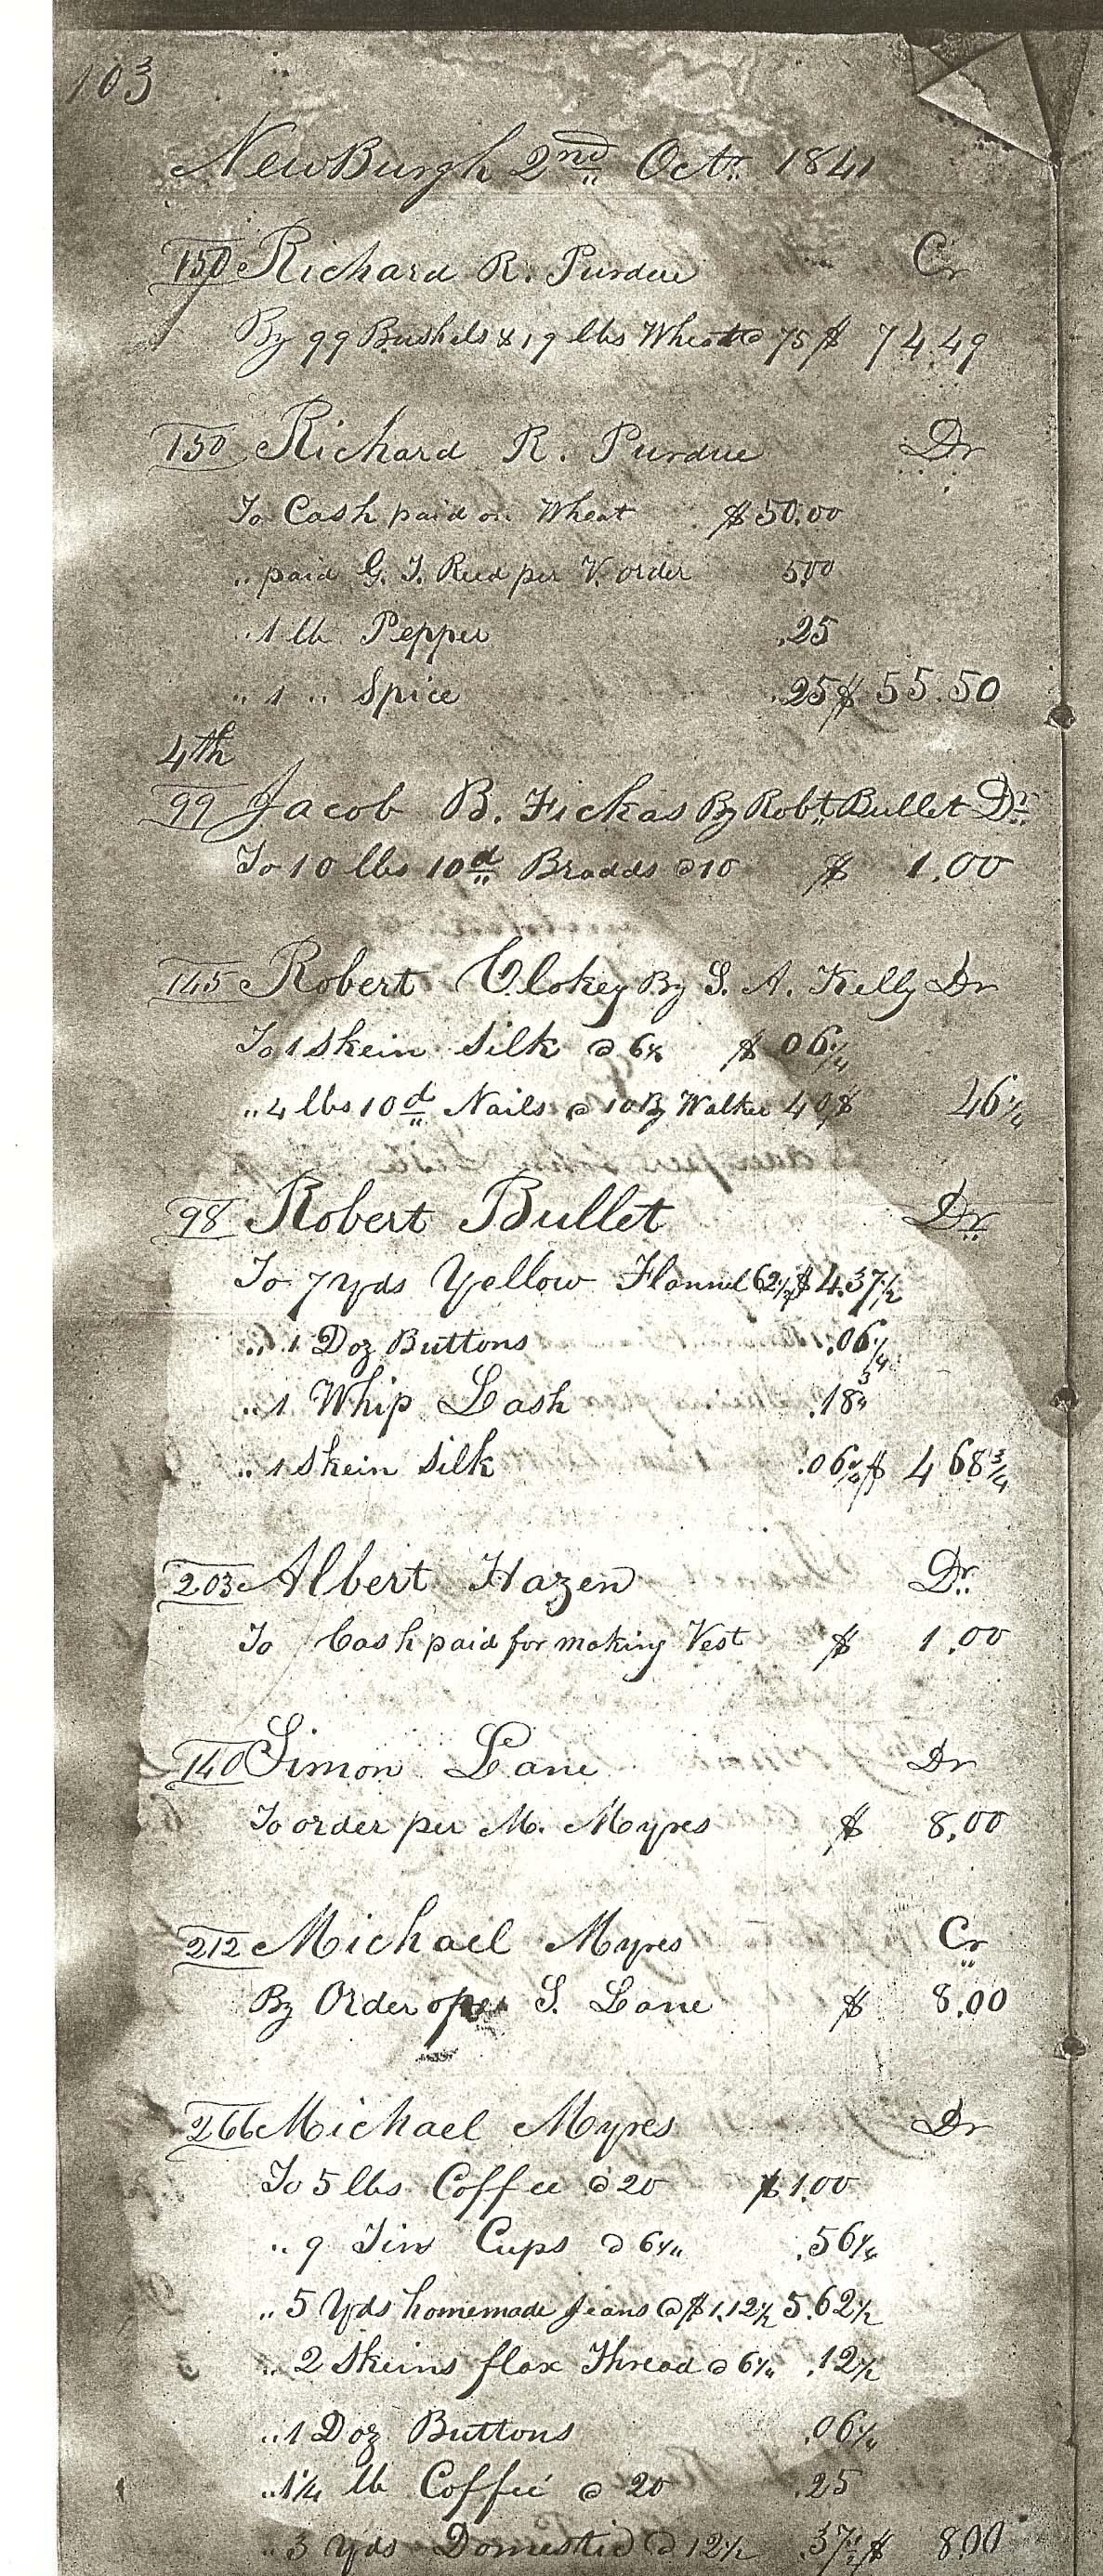 103
NewBurgh 2nd Octr. 1841
150 Richard R. Purdue Cr
By 99 Bushels & 19 lbs Wheat @ 75 $ 74.49
150 Richard R. Purdue Dr
To Cash paid on Wheat $50.00
" paid G. T. Reed per V. order 5.00
" 1 lb Pepper .25
" 1 " Spice .25 $ 55.50
4th
99 Jacob B. Fickas By Robt. Bullet Dr.
To 10 lbs 10d Bradds @ 10 $ 1.00
145 Robert Clokey By S. A. Kelly Dr
To 1 Skein Silk @ 6¼ $ 06¼
" 4 lbs 10d Nails @ 10 By Walker 40 $ 46¼
98 Robert Bullet Dr.
To 7 Yds Yellow Flannel 62½ $ 4.37½
" 1 Doz Buttons .06¼
" 1 Whip Lash .18¾
" 1 Skein Silk .06¼ $ 4 68¾
203 Albert Hazen Dr.
To Cash paid for making Vest $ 1.00
140 Simon Lane Dr
To order per M. Myres $ 8.00
212 Michael Myres Cr
By Order S. Lane $ 8.00
266 Michael Myres Dr
To 5 lbs Coffee @ 20 $1.00
" 9 Tin Cups @ 6¼ .56¼
" 5 Yds homemade Jeans @ $1.12½ 5.62½
" 2 Skeins flax Thread @ 6¼ .12½
" 1 Doz Buttons .06¼
" 1¼ lb Coffee @ 20 .25
" 3 Yds Domestic @ 12½ .37½ $ 8.00